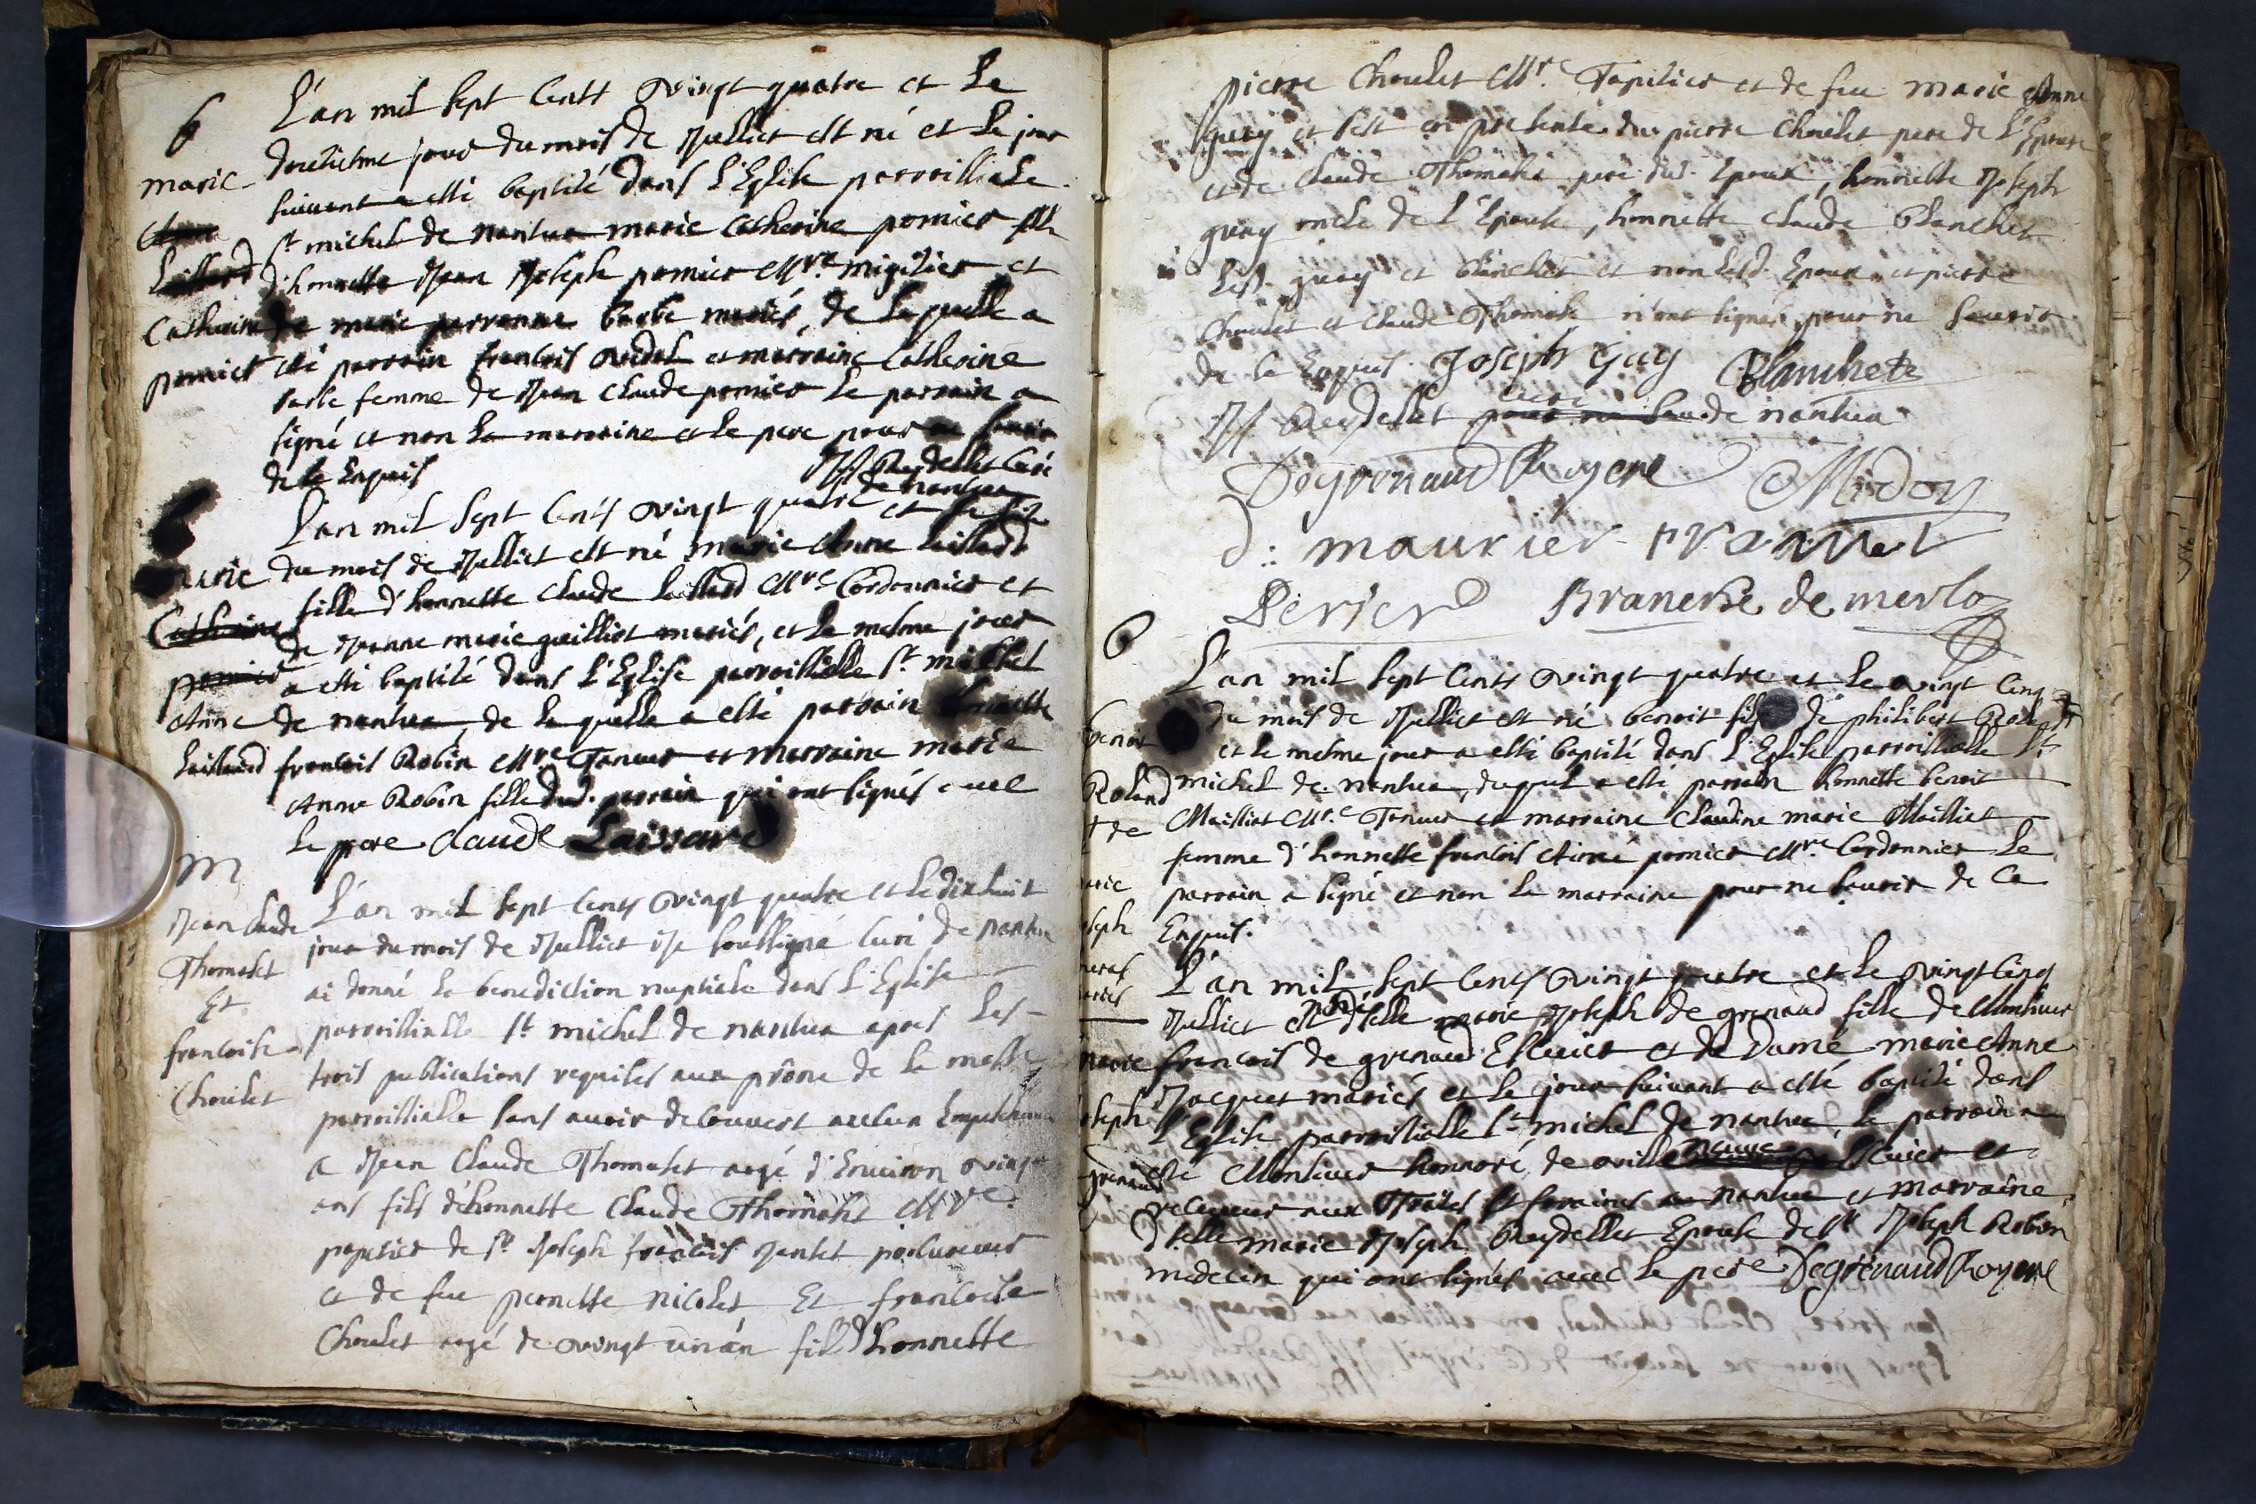 b
L'an mil sept cents vingt quatre et le
douziesme jour du mois de Juillet est né et le jour
suivant a esté baptisé dans l'Eglise parroissiale
St michel de nantua marie catherine pernier fille
d'honneste Jean Joseph pernier Mre migissier et
de marie perronne barbe mariés, de laquelle a
été parrain francois vidal et marraine catherine
barbe femme de Jean claude pernier le parrain a
signé et non la marraine et le pere pour ne scavoir
de ce Enquis
JF Reydellet Curé
de nantua
marie
Catherine
pernier
L'an mil sept cents vingt quatre et le
du mois de Juillet est né marie Anne laissard
fille d'honneste claude laissard Mre Cordonnier et
de Jeanne marie guilliot mariés, et le mesme jour
a esté baptisé dans l'Eglise parroissialle St michel
de nantua, de laquelle a esté parrain honneste
francois Robin Mre Taneur et marraine marie
Anne Robin fille dud. parrain qui ont signés avec
le pere claude Laissard
marie
Catherine
pernier
Anne
laissard
m
L'an mil sept cents vingt quatre et le dix huit
jour du mois de Juillet Je soussigné Curé de nantua
ai donné la benediction nuptiale dans l'Eglise
parroissialle St michel de nantua apres les
trois publications requises aux prône de la messe
parroissialle sans avoir decouvert aucun Empechement
a Jean Claude Thomasset aagé d'Environ vingt
ans fils d'honneste Claude Thomasset Mre
papetier de Sr Joseph francois Jantet procureur
et de feu pernette nicolet Et francoise
Choulet aagé de vingt un an fille d'honneste
Jean Claude
Thomasset
Et
francoise
Choulet
pierre Choulet Mre Tapissier et de feu marie Anne
guay et c'est en presence du pierre Choulet pere de l'Epouse
et de claude Thomasset pere dud. Epoux, honneste Joseph
guay oncle de l'Epouse, honneste claude Blanchet
lesd. guay et blanchet et non lesd. Epoux et pierre
Choulet et claude Thomasset n'ont signés pour ne scavoir
de ce Enquis. Joseph Gay Blanchete
JF Reydellet curé de nantua
Degrenaud Royere Midon
d: maurier
Perier Branche de merloz
b
L'an mil sept cents vingt quatre et le vingt cinq
du mois de Juillet est né benoit fils de philibert Roland
et le mesme jour a esté baptisé dans l'Eglise parroissialle St
michel de nantua, duquel a esté parrain honneste benoit
Mailliat Mre Taneur et marraine claudine marie Mailliat
femme d'honneste francois Aimé pernier Mre Cordonnier le
parrain a signé et non la marraine pour ne scavoir de ce
Enquis.
benoit
Roland
L'an mil sept cents vingt quatre et le vingt cinq
Juillet est née d'elle marie Joseph de grenaud fille de Monsieur
francois de grenaud Escuier et de Dame marie Anne
Jacquet mariés et le jour suivant a esté baptisé dans
l'Eglise parroissialle St michel de nantua, le parrain a
esté Monsieur honnoré de ville neuve Escuier et
receveur aux traites foraines au nantua et marraine
d'elle marie Joseph Reydellet Epouse de Sr Joseph Robin
medecin qui ont signés avec le pere Degrenaud Royere
marie
Joseph
grenaud